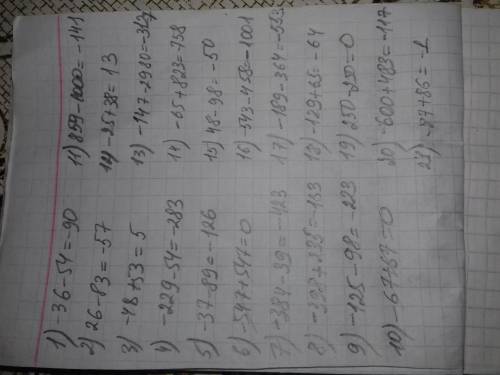 1) -36-54=90
2) 26-83=-57
3) -48+53=5
4) -229-54=-283
5) -37-89=-126
6) -547+547=0
7) -384-39=-423
8) -398+235=-133
9) -125-98=-223
10) -67+67=0
11) 859-1000=-141
12) -25+38=13
13) -147-2980=
14) -65+823=758
15) 48-98=-50
16) -543-458=-1001
17) -189-364=-553
18) -129+65=-64
19) 250-250=0
20) -600+483=-117
21) -87+86=-1